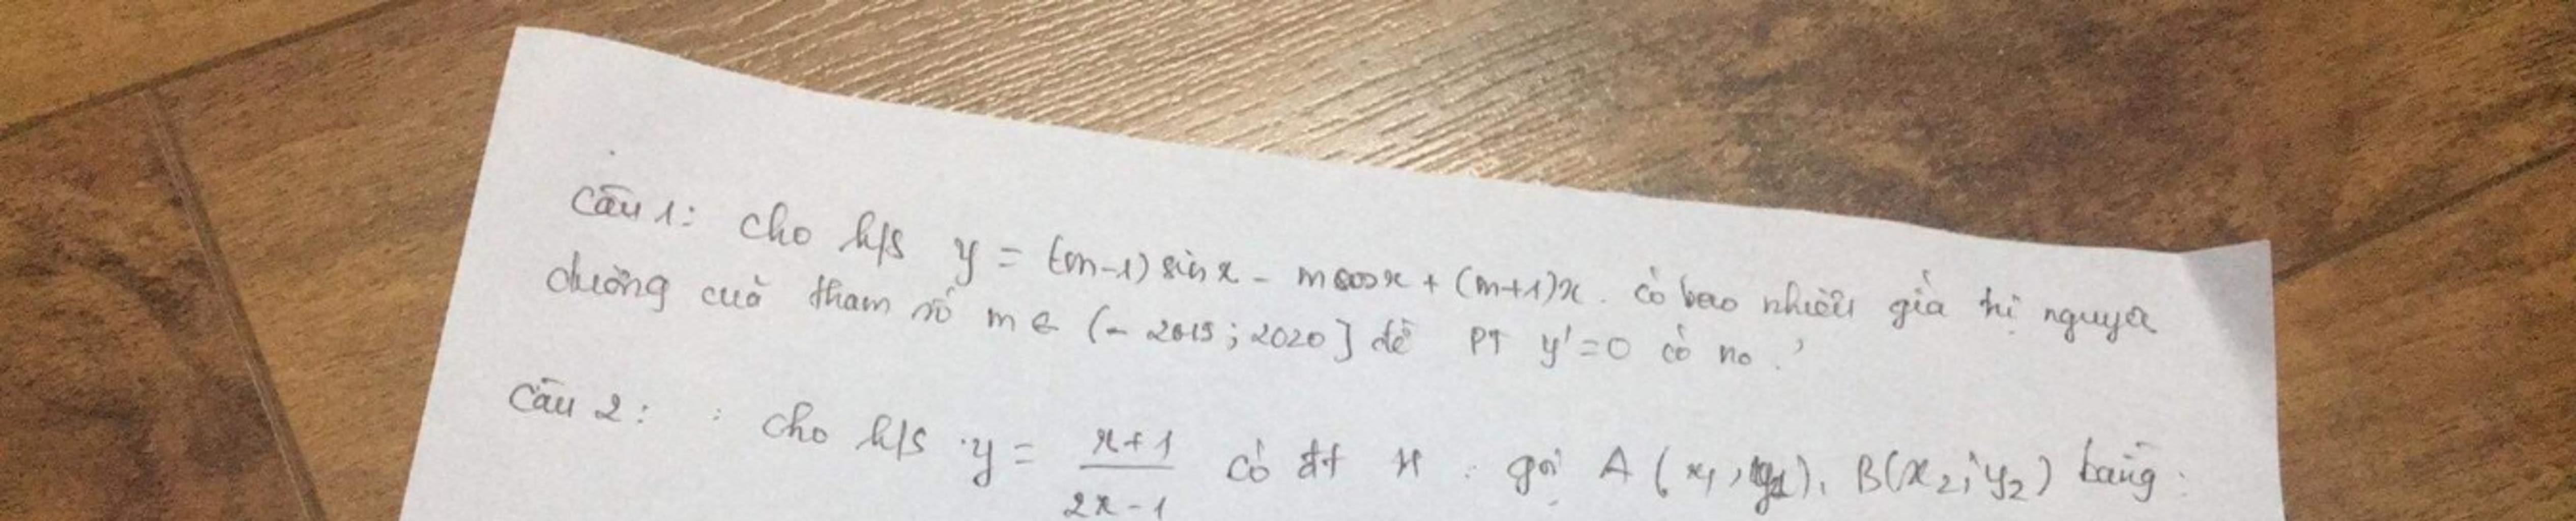 Câu 1: cho h/s y = (m-1) sin x - m cos x + (m+1)x. có bao nhiêu giá trị nguyên
dương của tham số m ∈ (- 2019; 2020] để PT y' = 0 có no.?
Câu 2: : cho h/s y = \frac{x+1}{2x-1} có đt H. gọi A (x₁, y₁), B(x₂; y₂) bằng: